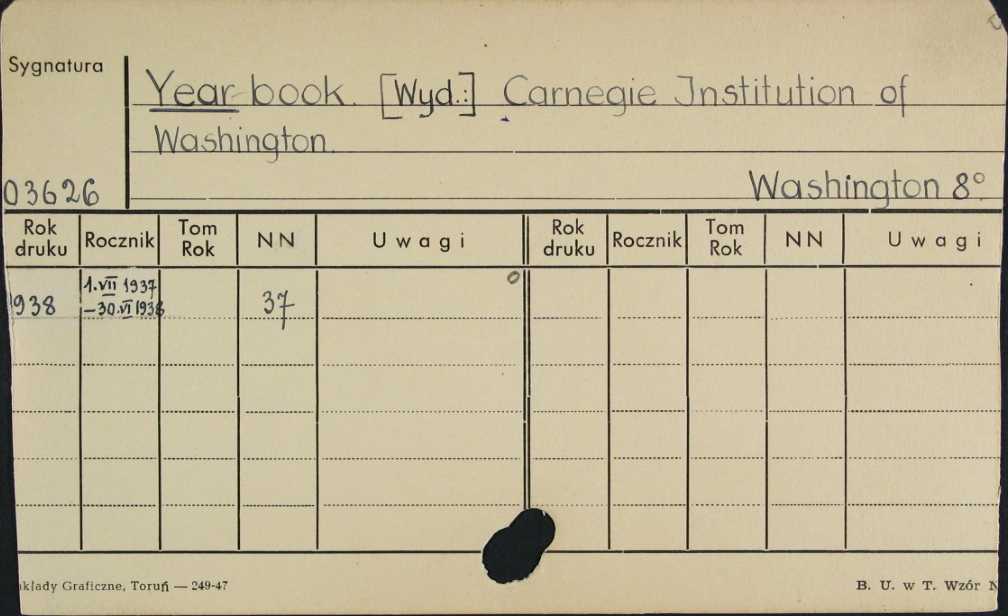 Sygnatura
Year book. [Wyd.:] Carnegie Institution of
Washington.
03626
Washington 8°.
Rok druku Rocznik Tom Rok NN Uwagi Rok druku Rocznik Tom Rok NN Uwagi
938 1.VII 1937 –30.VI 1938 37
kłady Graficzne, Toruń — 249-47
B. U. w T. Wzór N